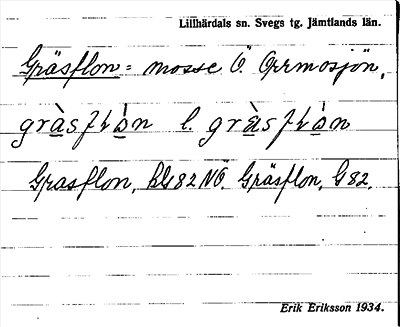 Lillhärdals sn. Svegs tg. Jämtlands län.
Gräsflon = mosse Ö. Ormosjön,
l.
Grasflon, BG82NÖ. Gräsflon, G82.
Erik Eriksson 1934.